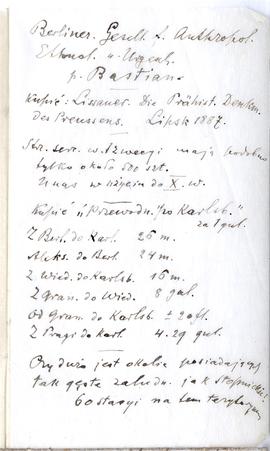 Berliner. Gesell. f. Anthropol.
Ethnol. u. Urgesch.
p. Bastian
Kupić: Lissauer. Die Prähist. Denkm.
des Preussens. Lipsk 1887.
Str. serr. w Szwecyi mają podobno
tylko około 500 szt.
U nas w użyciu do X. w.
Kupić „Przewodn. po Karlsb."
za 1 gul.
Z Berl. do Karl. 26 m.
Aleks. do Berl. 24 m.
Z Wied. do Karlsb. 16 m.
Z Gran. do Wied. 8 gul.
od Gran. do Karlsb. ± 20 fl.
Z Pragi do Karl. 4.29 gul.
Czy dużo jest okolic posiadających
tak gęste zaludn. jak Stopnickie?
60 stacyi na tem terytoryum